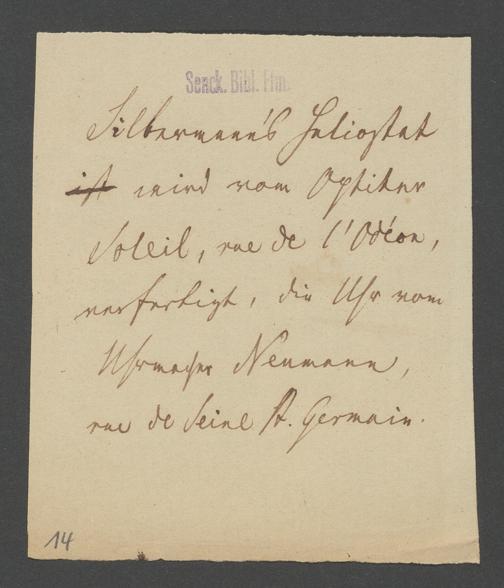 Senck. Bibl. Ffm.
Silbermann's Heliostat
ist wird vom Optiker
Soleil, rue de l'Odéon,
verfertigt, die Uhr vom
Uhrmacher Neumann,
rue de Seine St. Germain.
14